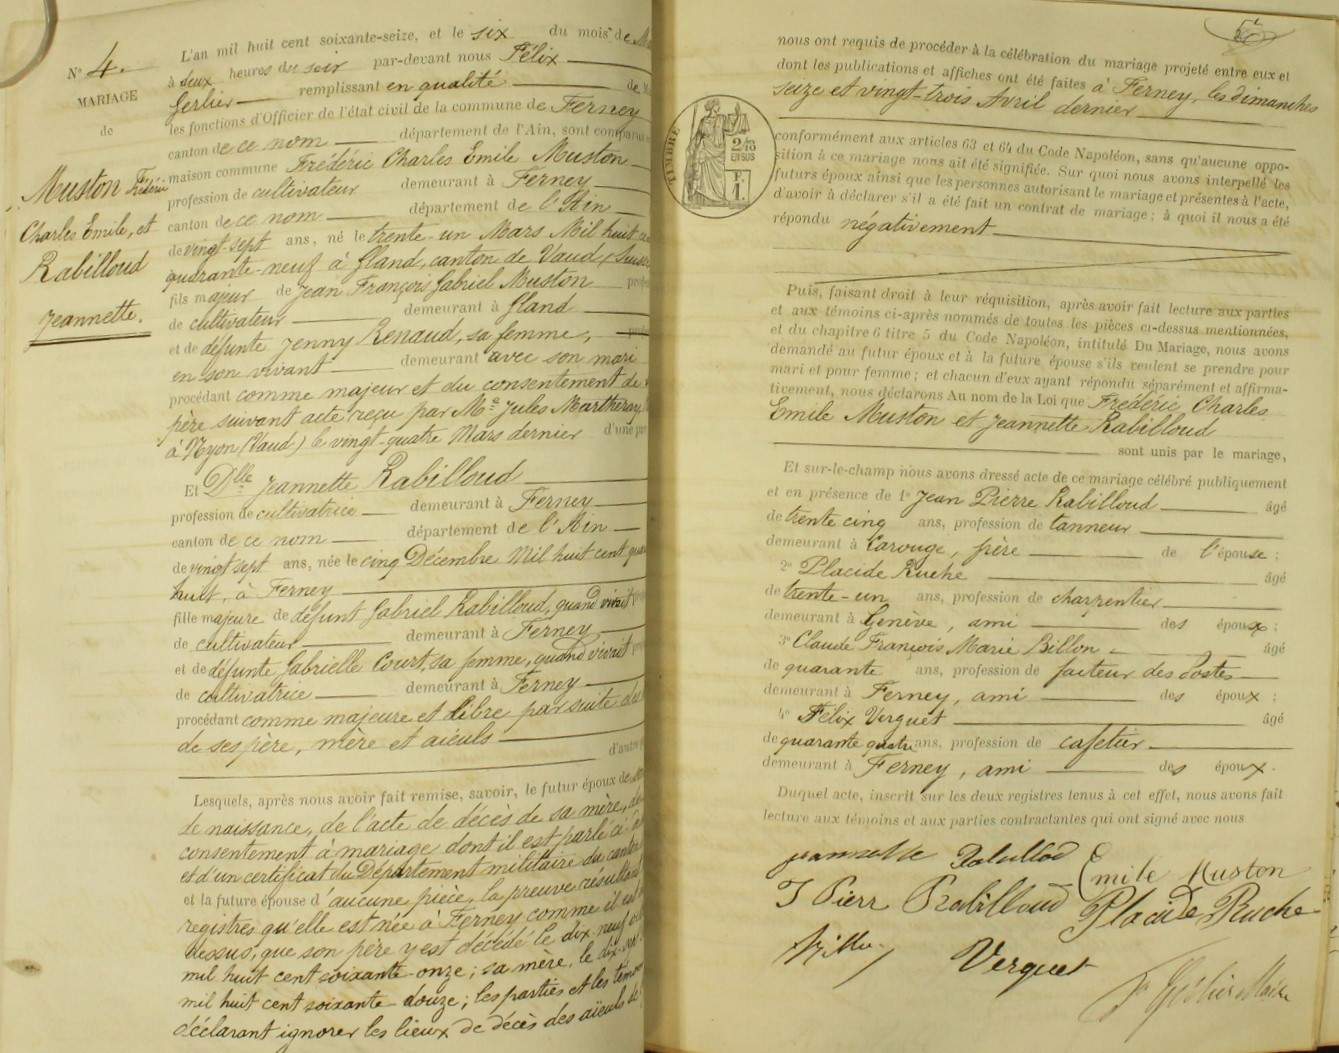 N° 4.
MARIAGE
de
Muston Frédéric
Charles Emile, et
Rabilloud
Jeannette.
L'an mil huit cent soixante-seize, et le six du mois de
à deux heures du soir par-devant nous Félix
Gerlier remplissant en qualité de
les fonctions d'Officier de l'état civil de la commune de Ferney
canton de ce nom département de l'Ain, sont comparus
maison commune Frédéric Charles Emile Muston
profession de cultivateur demeurant à Ferney
canton de ce nom département de l'Ain
de vingt-sept ans, né le trente-un Mars Mil huit
quarante-neuf à Gland, canton de Vaud, Suisse
fils majeur de Jean François Gabriel Muston
de cultivateur demeurant à Gland
et de défunte Jenny Renaud, sa femme,
en son vivant demeurant avec son mari
procédant comme majeur et du consentement de
père suivant acte reçu par Me Jules Martheray
à Nyon (Vaud) le vingt-quatre Mars dernier d'une
Et Dlle Jeannette Rabilloud
profession de cultivatrice demeurant à Ferney
canton de ce nom département de l'Ain
de vingt sept ans, née le cinq Décembre Mil huit cent
huit, à Ferney
fille majeure de défunt Gabriel Rabilloud, quand vivait
de cultivateur demeurant à Ferney
et de défunte Gabrielle Court, sa femme, quand vivait
de cultivatrice demeurant à Ferney
procédant comme majeure et libre par suite de
de ses père, mère et aïeuls
d'autre
Lesquels, après nous avoir fait remise, savoir, le futur époux de
de naissance, de l'acte de décès de sa mère, de
consentement à mariage dont il est parlé ci
et d'un certificat du Département militaire du canton
et la future épouse d'aucune pièce, la preuve résultant
registres qu'elle est née à Ferney comme il est
dessus, que son père y est décédé le dix-neuf
mil huit cent soixante-onze; sa mère, le dix
mil huit cent soixante-douze; les parties et les témoins
déclarant ignorer les lieux de décès des aïeuls
nous ont requis de procéder à la célébration du mariage projeté entre eux et
dont les publications et affiches ont été faites à Ferney, les dimanches
seize et vingt-trois Avril dernier
TIMBRE
2/10
EN SUS
F.
1.
conformément aux articles 63 et 64 du Code Napoléon, sans qu'aucune oppo-
sition à ce mariage nous ait été signifiée. Sur quoi nous avons interpellé les
futurs époux ainsi que les personnes autorisant le mariage et présentes à l'acte,
d'avoir à déclarer s'il a été fait un contrat de mariage; à quoi il nous a été
répondu négativement
Puis, faisant droit à leur réquisition, après avoir fait lecture aux parties
et aux témoins ci-après nommés de toutes les pièces ci-dessus mentionnées,
et du chapitre 6 titre 5 du Code Napoléon, intitulé Du Mariage, nous avons
demandé au futur époux et à la future épouse s'ils veulent se prendre pour
mari et pour femme; et chacun d'eux ayant répondu séparément et affirma-
tivement, nous déclarons Au nom de la Loi que Frédéric Charles
Emile Muston et Jeannette Rabilloud
sont unis par le mariage,
Et sur-le-champ nous avons dressé acte de ce mariage célébré publiquement
et en présence de 1° Jean Pierre Rabilloud âgé
de trente cinq ans, profession de tanneur
demeurant à Carouge, frère de l'épouse;
2° Placide Ruche âgé
de trente-un ans, profession de charpentier
demeurant à Genève, ami des époux;
3° Claude François Marie Billon âgé
de quarante ans, profession de facteur des Postes
demeurant à Ferney, ami des époux;
4° Félix Verguet âgé
de quarante quatre ans, profession de cafetier
demeurant à Ferney, ami des époux.
Duquel acte, inscrit sur les deux registres tenus à cet effet, nous avons fait
lecture aux témoins et aux parties contractantes qui ont signé avec nous
jeannette Rabillod Emile Muston
J Pierr Rabilloud Placide Ruche
Billon Verguet
F Gerlier Maire